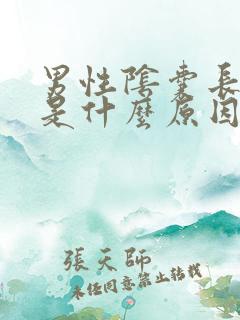 男性陰囊長
是什麼原因
張天師
未經同意禁止轉載